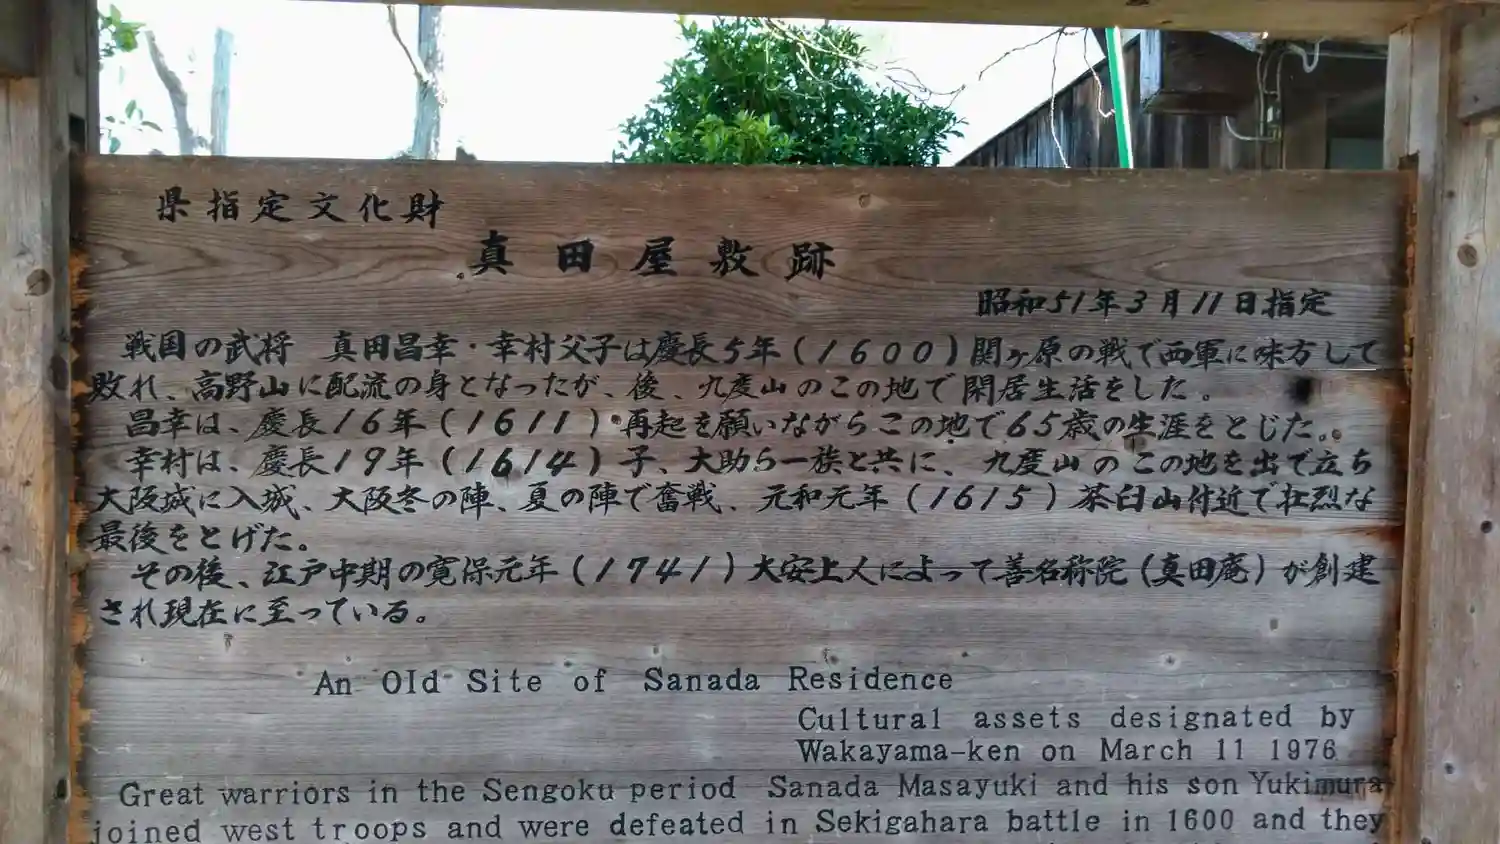 県指定文化財
真田屋敷跡
昭和51年3月11日指定
戦国の武将 真田昌幸・幸村父子は慶長5年(1600)関ヶ原の戦で西軍に味方して
敗れ、高野山に配流の身となったが、後、九度山のこの地で閑居生活をした。
昌幸は、慶長16年(1611)再起を願いながらこの地で65歳の生涯をとじた。
幸村は、慶長19年(1614)子、大助ら一族と共に、九度山のこの地を出で立ち
大阪城に入城、大阪冬の陣、夏の陣で奮戦、元和元年(1615)茶臼山付近で壮烈な
最後をとげた。
その後、江戸中期の寛保元年(1741)大安上人によって善名称院(真田庵)が創建
され現在に至っている。
An Old Site of Sanada Residence
Cultural assets designated by
Wakayama-ken on March 11 1976
Great warriors in the Sengoku period Sanada Masayuki and his son Yukimura
joined west troops and were defeated in Sekigahara battle in 1600 and they